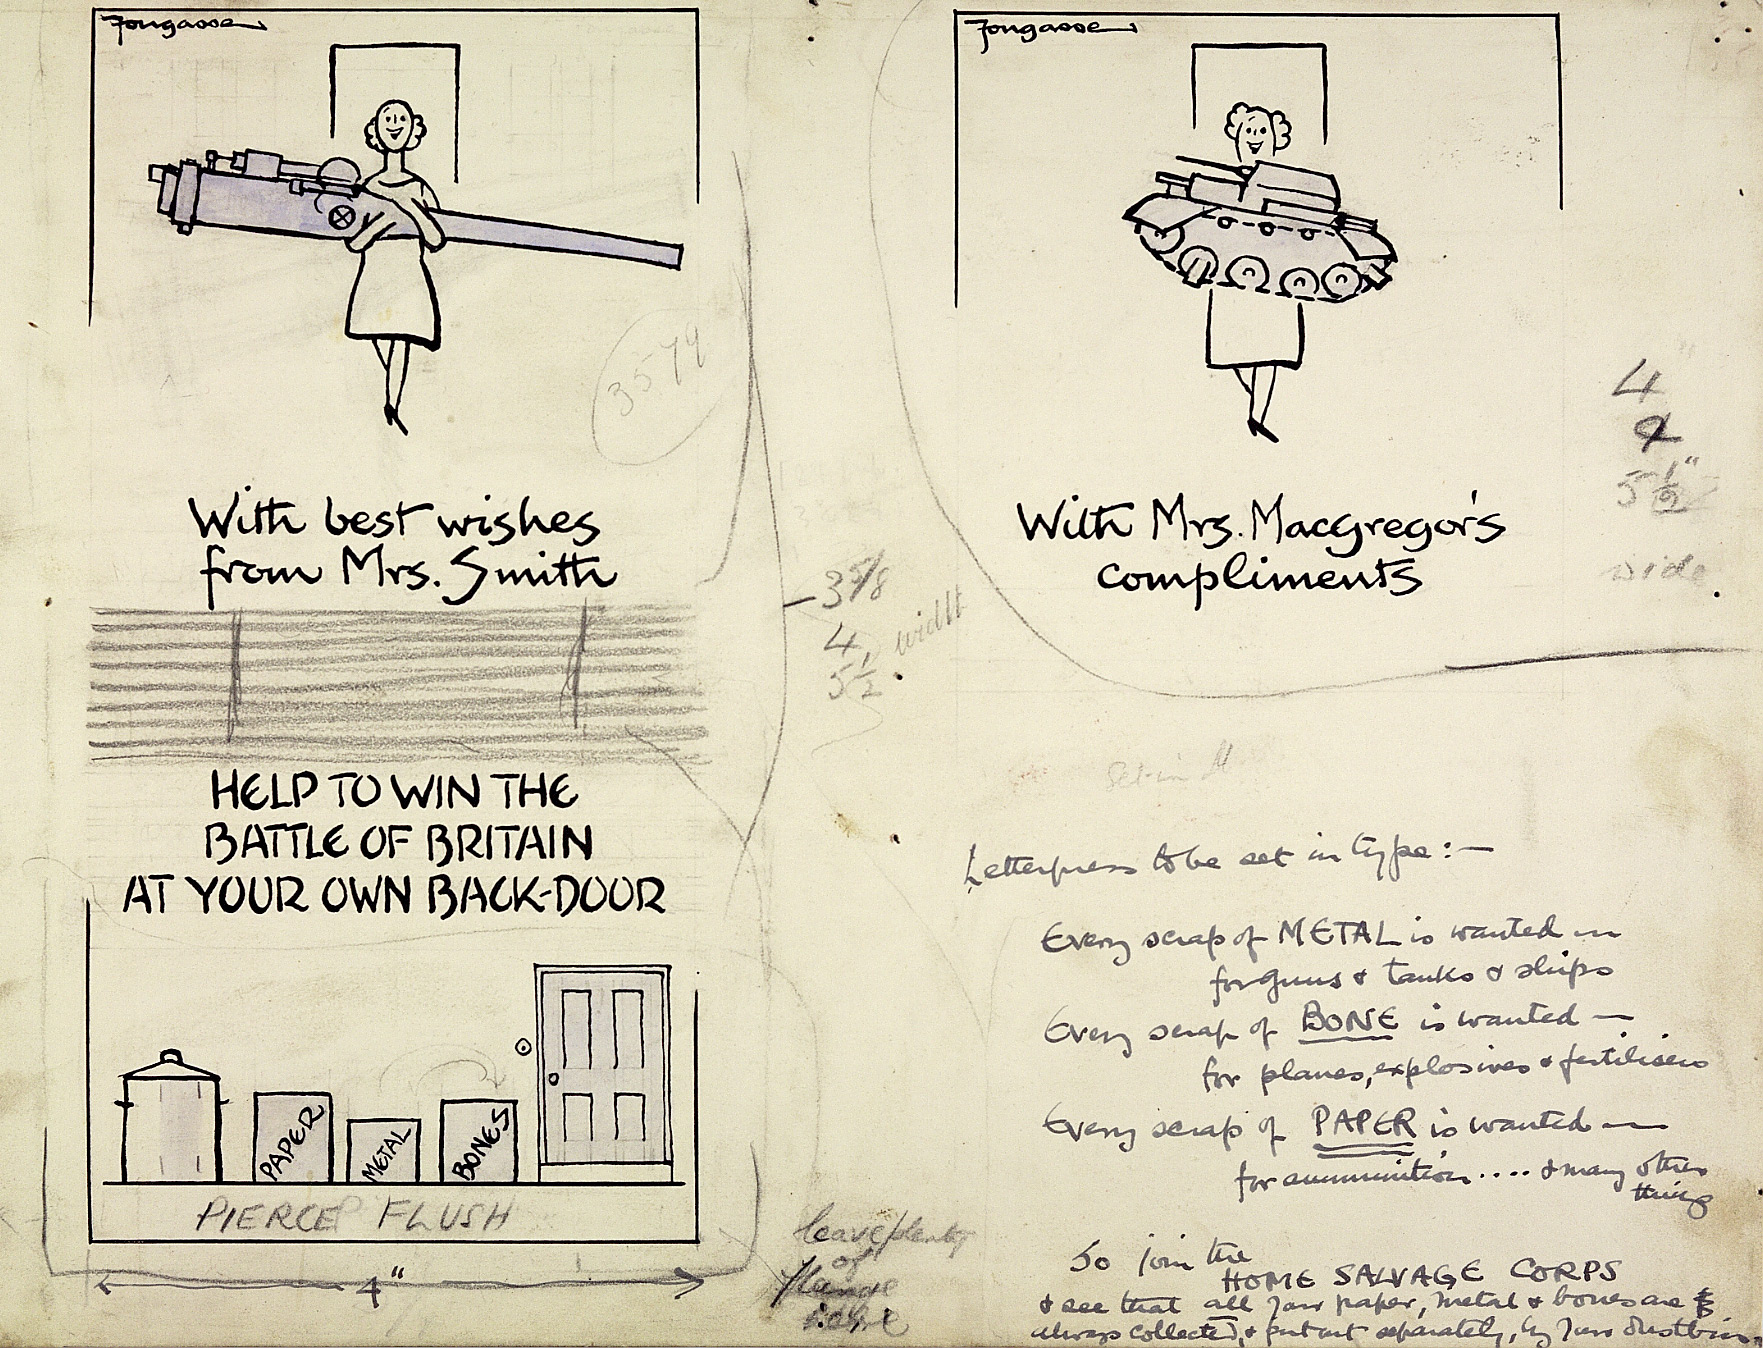 Fougasse
With best wishes
from Mrs. Smith
HELP TO WIN THE
BATTLE OF BRITAIN
AT YOUR OWN BACK-DOOR
PAPER
METAL
BONES
PIERCE FLUSH
4"
3574
3 5/8
4
5 1/2
width
leave plenty
of
Fougasse
With Mrs. Macgregor's
compliments
4
&
5 1/2"
wide
Set in
Letterpress to be set in type:—
Every scrap of METAL is wanted —
for guns & tanks & ships
Every scrap of BONE is wanted —
for planes, explosives & fertilisers
Every scrap of PAPER is wanted —
for ammunition .... & many other
things
So join the
HOME SALVAGE CORPS
& see that all your paper, metal & bones are
always collected, & put out separately, by your dustbin.